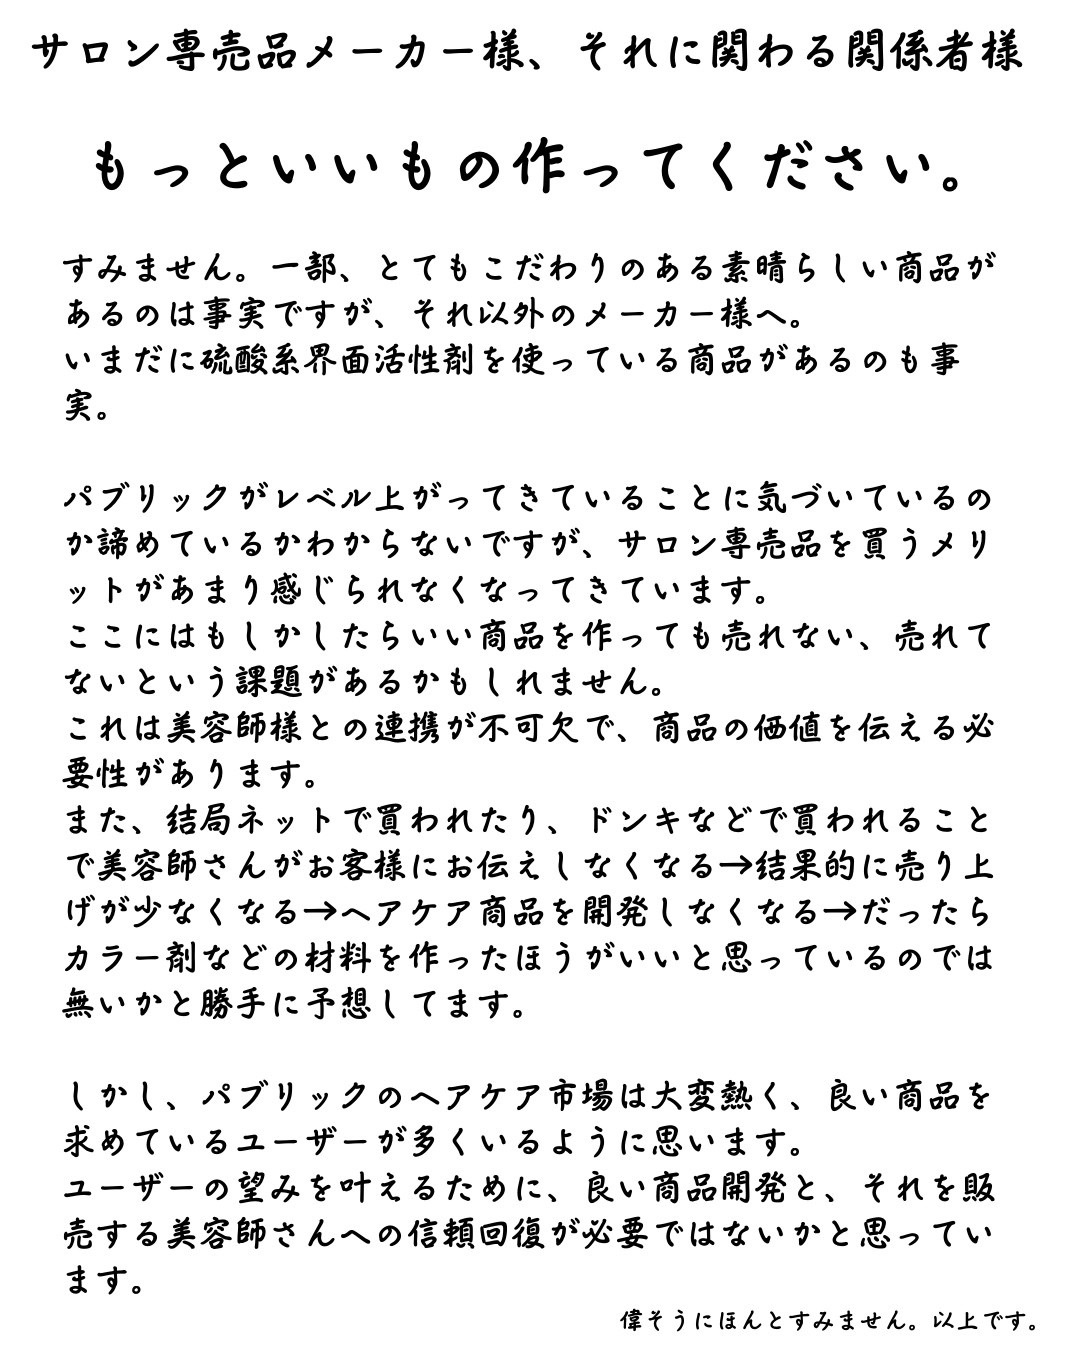 サロン専売品メーカー様、それに関わる関係者様
もっといいもの作ってください。
すみません。一部、とてもこだわりのある素晴らしい商品が
あるのは事実ですが、それ以外のメーカー様へ。
いまだに硫酸系界面活性剤を使っている商品があるのも事
実。
パブリックがレベル上がってきていることに気づいているの
か諦めているかわからないですが、サロン専売品を買うメリ
ットがあまり感じられなくなってきています。
ここにはもしかしたらいい商品を作っても売れない、売れて
ないという課題があるかもしれません。
これは美容師様との連携が不可欠で、商品の価値を伝える必
要性があります。
また、結局ネットで買われたり、ドンキなどで買われること
で美容師さんがお客様にお伝えしなくなる→結果的に売り上
げが少なくなる→ヘアケア商品を開発しなくなる→だったら
カラー剤などの材料を作ったほうがいいと思っているのでは
無いかと勝手に予想してます。
しかし、パブリックのヘアケア市場は大変熱く、良い商品を
求めているユーザーが多くいるように思います。
ユーザーの望みを叶えるために、良い商品開発と、それを販
売する美容師さんへの信頼回復が必要ではないかと思ってい
ます。
偉そうにほんとすみません。以上です。